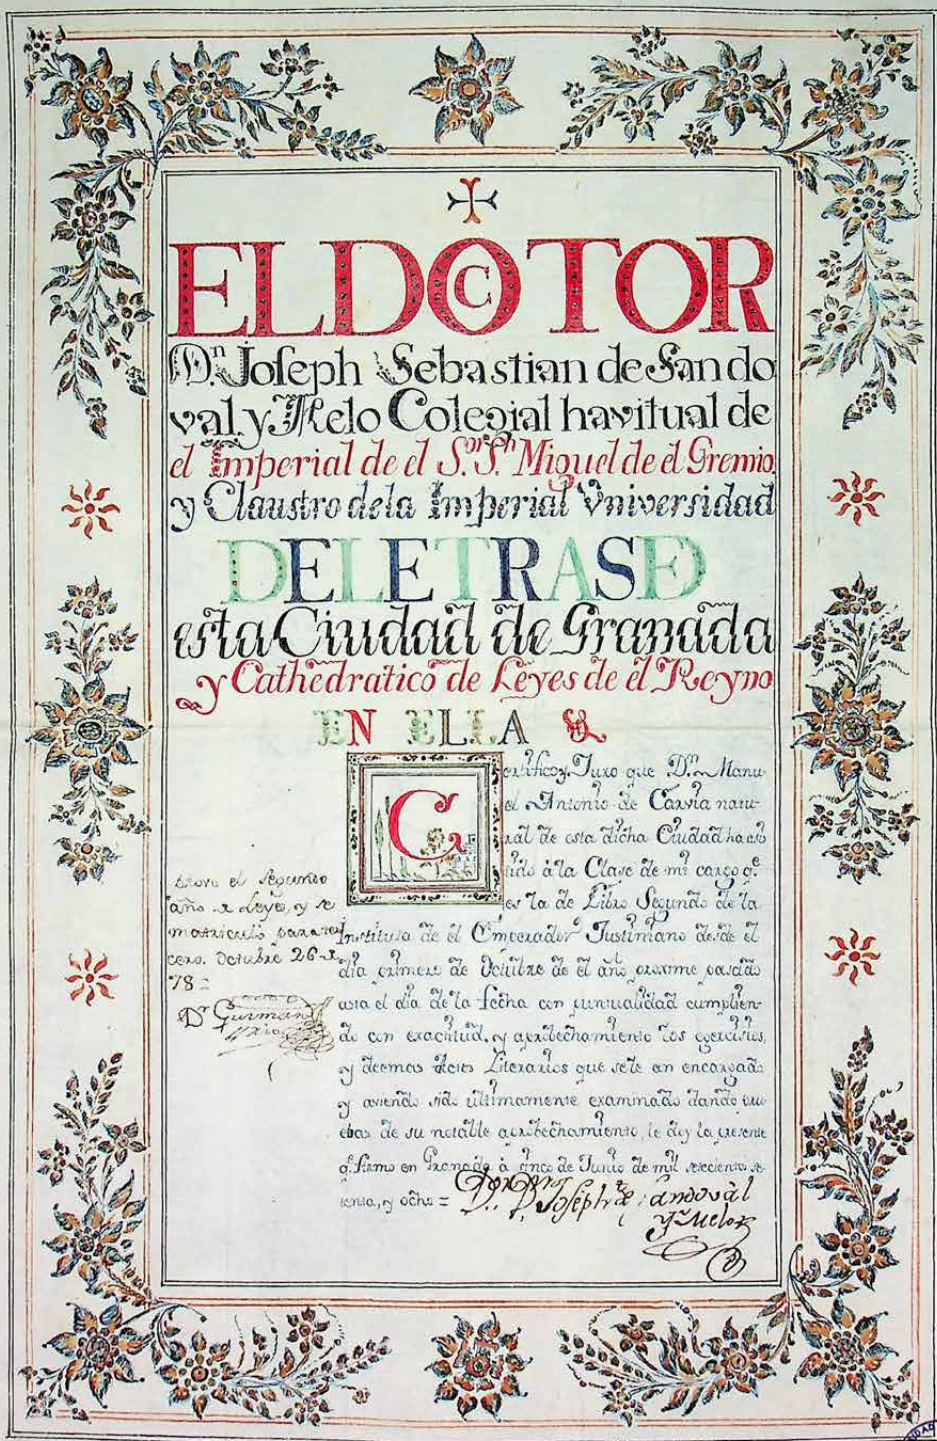 EL DOCTOR
Dn. Joseph Sebastian de Sando
val y Melo Colegial havitual de
el Imperial de el Sor. Sn. Miguel de el Gremio
y Claustro de la Imperial Vniversidad
DE LETRAS DE
esta Ciudad de Granada
y Cathedratico de Leyes de el Reyno
EN ELLA &
Certifico y Juro que Dn. Manu
el Antonio de Carvia natu
ral de esta dicha Ciudad ha asis
tido à la Clase de mi cargo qe.
es la de Libro Segundo de la
Instituta de el Emperador Justiniano desde el
dia primero de Octubre de el año proximo pasado
asta el dia de la fecha con puntualidad cumplien
do con exactitud, y aprobechamiento los exercisios,
y deemas Actos Literarios que sele an encargado
y aviendo sido ultimamente examinado dando pru
ebas de su notable aprobechamiento, le doy la presente
q. firmo en Granada à sinco de Junio de mil setecientos se
tenta, y ocho =
Dor. Dn. Joseph de Sandoval
y Melo
el segundo
año de Leyes, y se
matriculò para ter
cero. Octubre 26 de
78 =
Dr Guzman